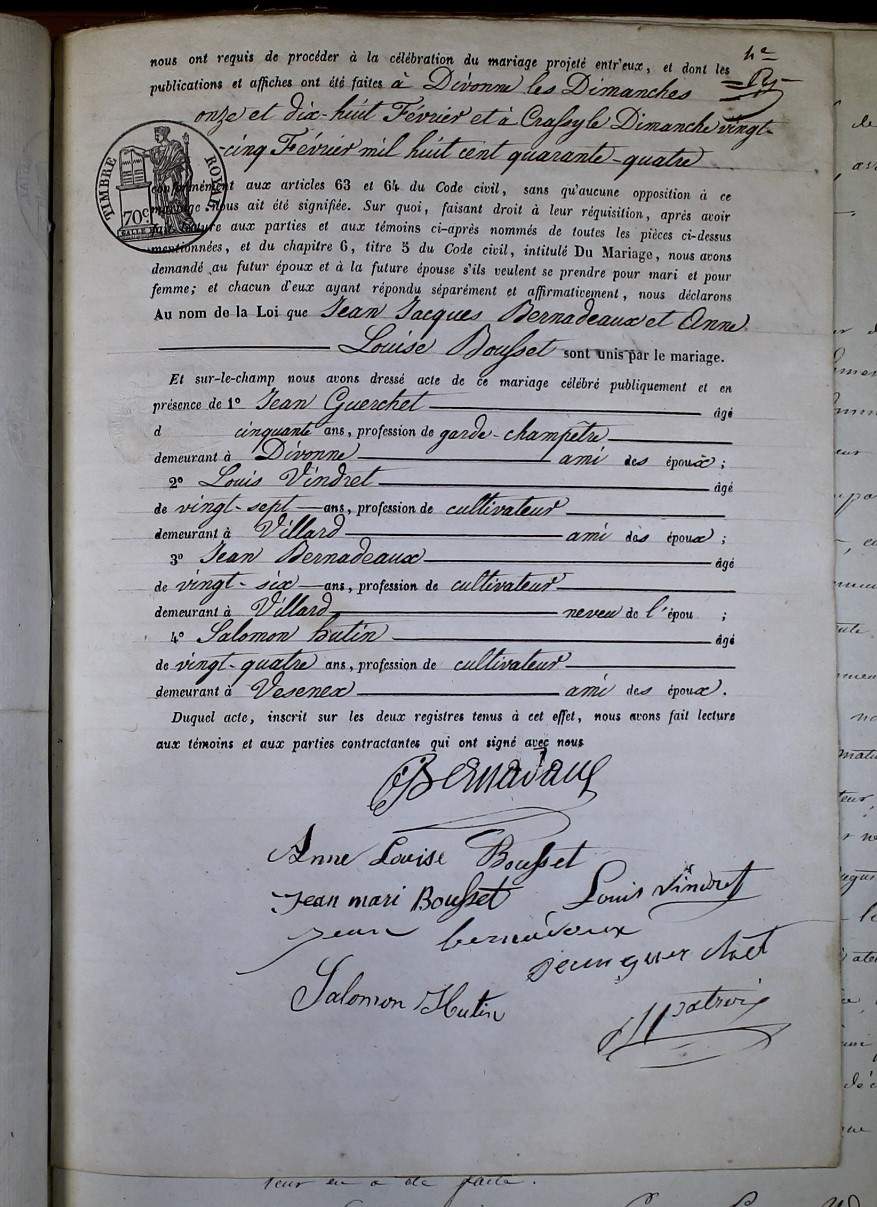 nous ont requis de procéder à la célébration du mariage projeté entr'eux, et dont les
publications et affiches ont été faites à Divonne les Dimanches
onze et dix-huit Février et à Crassy le Dimanche vingt-
cinq Février mil huit cent quarante-quatre
conformément aux articles 63 et 64 du Code civil, sans qu'aucune opposition à ce
mariage nous ait été signifiée. Sur quoi, faisant droit à leur réquisition, après avoir
fait lecture aux parties et aux témoins ci-après nommés de toutes les pièces ci-dessus
mentionnées, et du chapitre 6, titre 5 du Code civil, intitulé Du Mariage, nous avons
demandé au futur époux et à la future épouse s'ils veulent se prendre pour mari et pour
femme; et chacun d'eux ayant répondu séparément et affirmativement, nous déclarons
Au nom de la Loi que Jean Jacques Bernadeaux et Anne
Louise Bousset sont unis par le mariage.
Et sur-le-champ nous avons dressé acte de ce mariage célébré publiquement et en
présence de 1º Jean Guerchet âgé
d cinquante ans, profession de garde-champêtre
demeurant à Divonne ami des époux;
2º Louis Vindret âgé
de vingt-sept ans, profession de cultivateur
demeurant à Villard ami des époux;
3º Jean Bernadeaux âgé
de vingt-six ans, profession de cultivateur
demeurant à Villard neveu de l'épou ;
4º Salomon hutin âgé
de vingt-quatre ans, profession de cultivateur
demeurant à Vesenex ami des époux.
Duquel acte, inscrit sur les deux registres tenus à cet effet, nous avons fait lecture
aux témoins et aux parties contractantes qui ont signé avec nous
TIMBRE ROYAL
70c
Anne Louise Bousset
Jean mari Bousset Louis Vindret
Jean bernadoux
Jean guer chet
Salomon Hutin